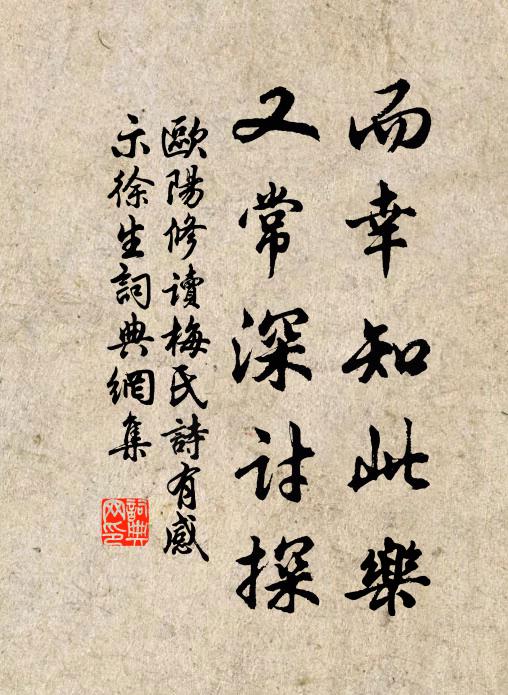 而幸知此樂
又常深討探
歐陽修讀梅氏詩有感
示徐生詞典網集
詞典网印